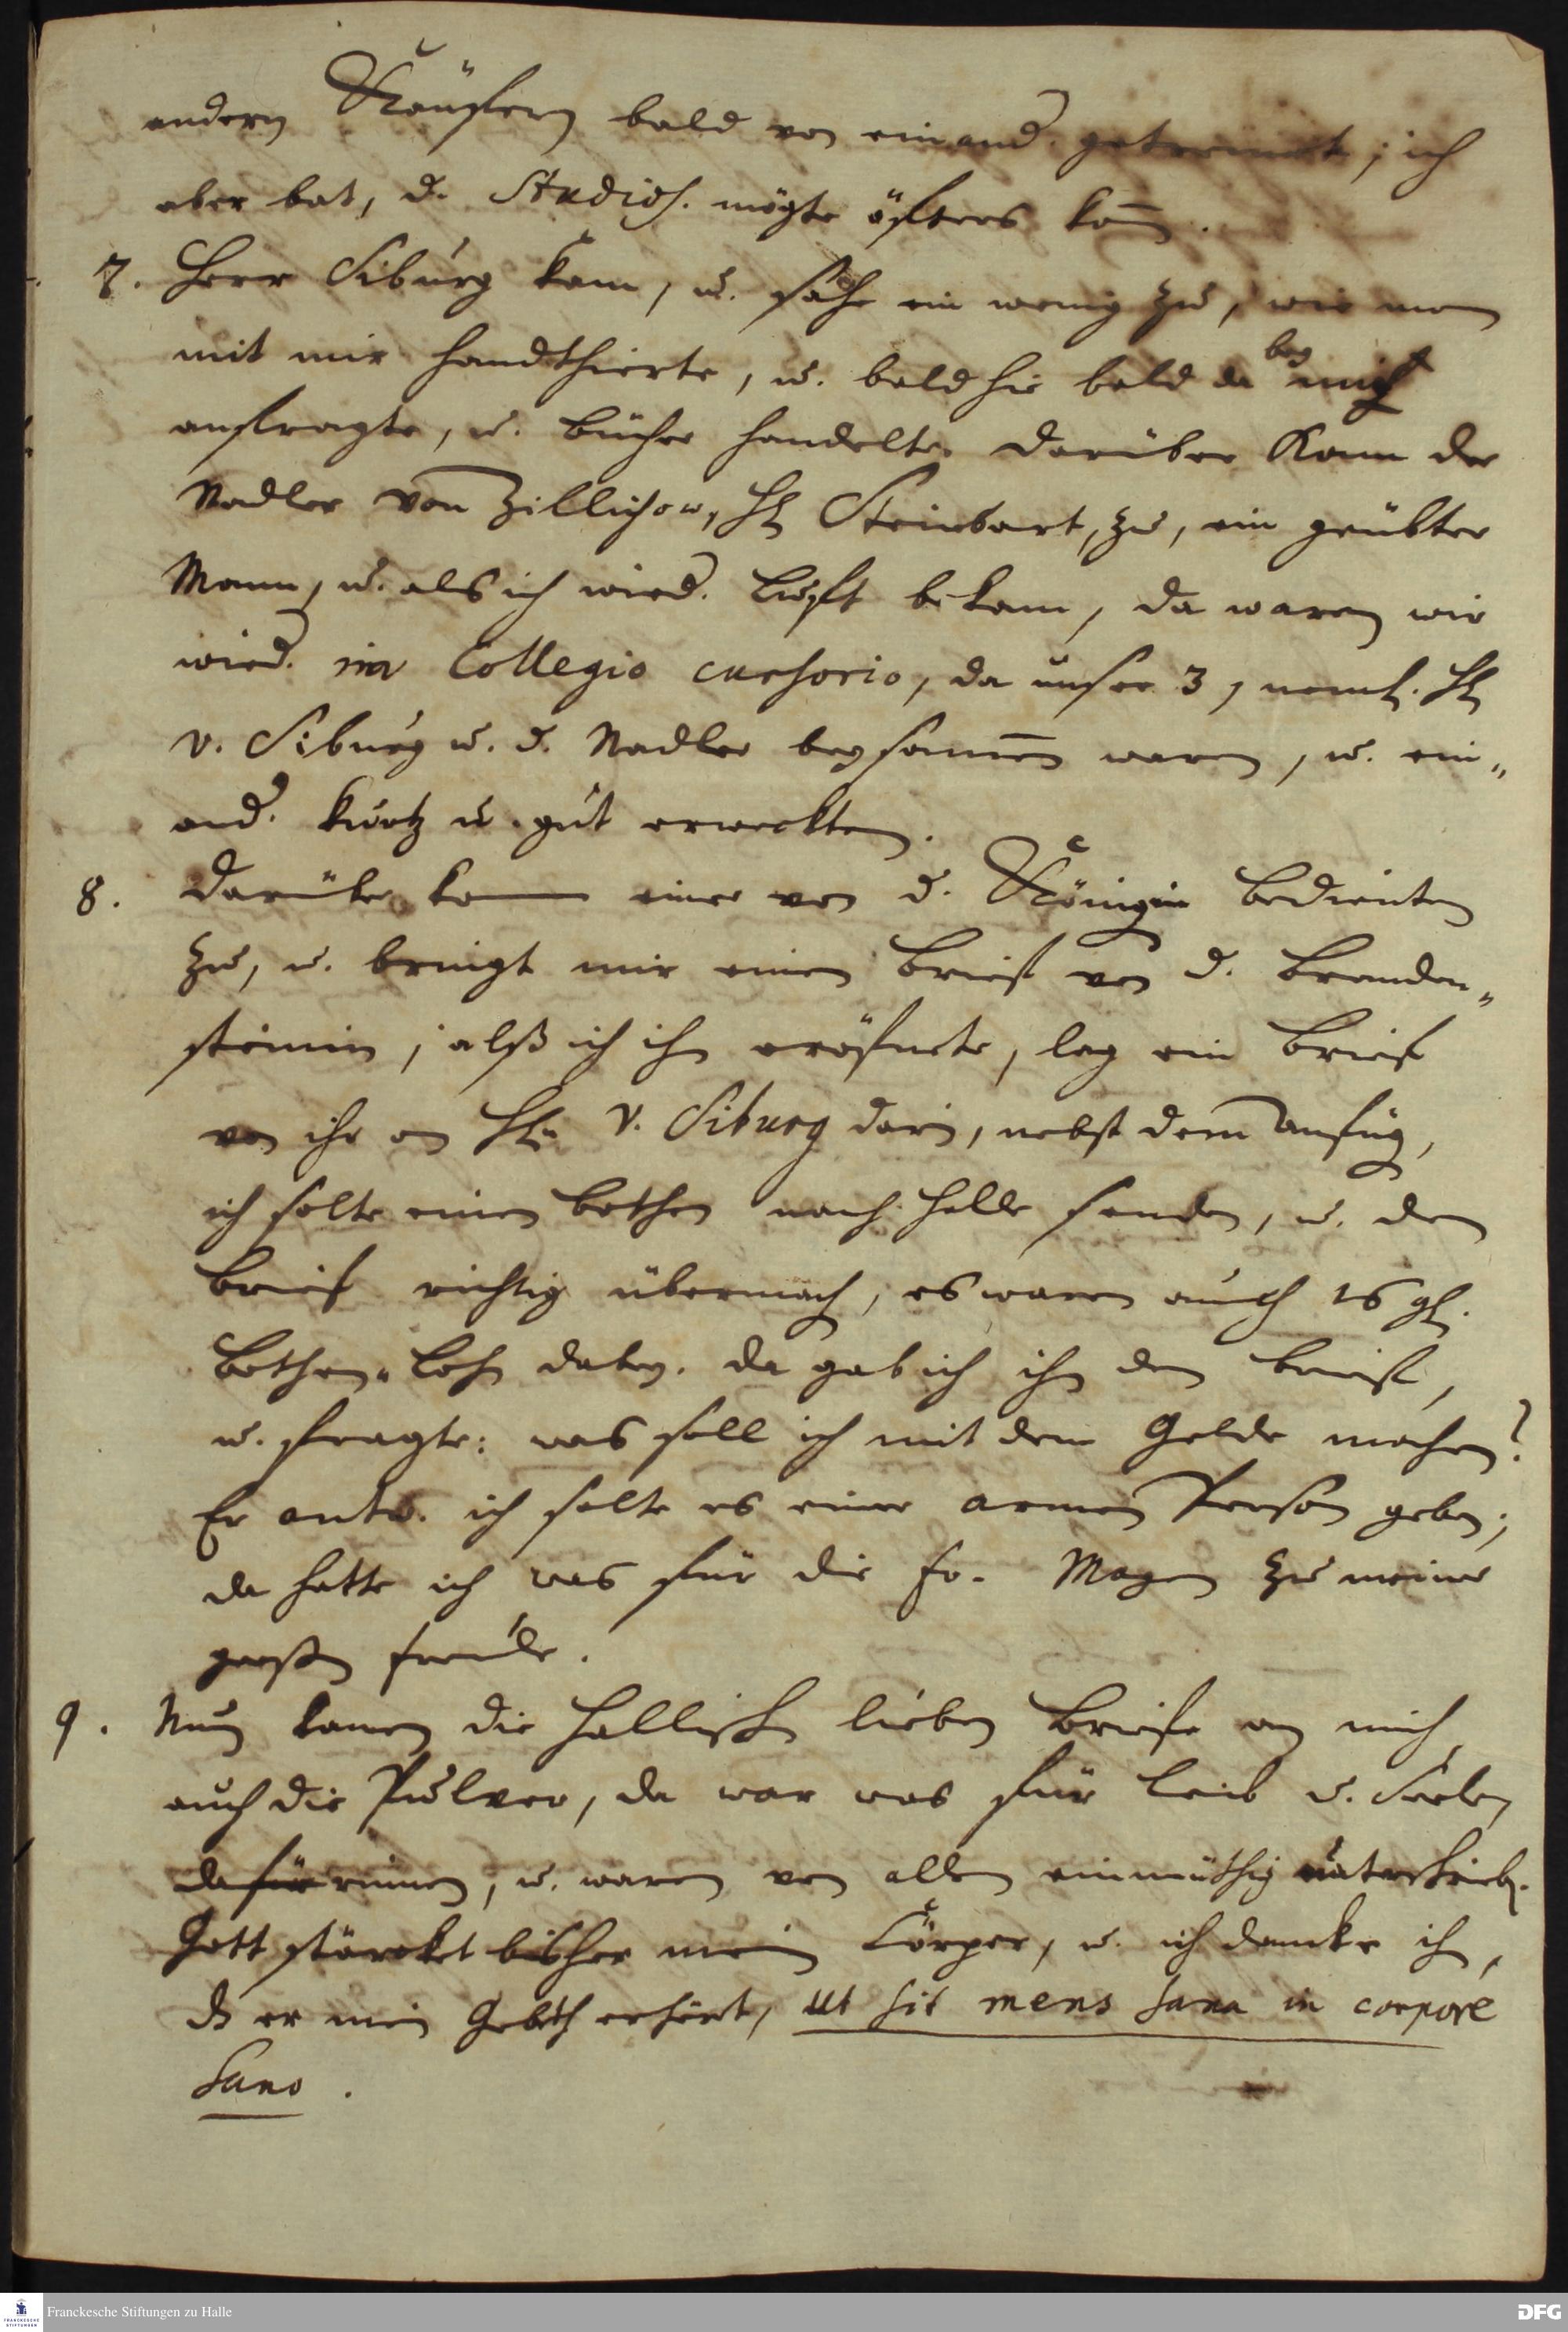 andern Käufern bald von einand. getrennet; ich
aber bat, d. Studios. mögte öfters kom̄.
7. Herr Siburg kam, u. sahe ein wenig zu, wie man
mit mir handthierte, u. bald hie bald da bey mich
anfragte, u. bücher handelte. darüber kam der
Nadler von Zillichow, H. Steinbart, zu, ein geübter
Mann, u. als ich wied. Lufft bekam, da waren wir
wied. im Collegio cursorio, da unser 3, neml. H.
v. Siburg u. d. Nadler beysam̄en waren, u. ein„
and. kurtz u. gut erweckten.
8. darüber kam einer von d. Königin bedienten
zu, u. bringt mir einen brieff von d. Branden„
steinin; alß ich ihn eröfnete, lag ein brieff
von ihr an H. v. Siburg darin, nebst dem anfüg,
ich solte einen bothen nach Halle senden, u. den
brief richtig übermach, es waren auch 16 gl.
bothen-Lohn dabey. da gab ich ihm den brieff,
u. fragte: was soll ich mit dem Gelde machen?
Er antw. ich solte es einer armen Person geben;
da hatte ich was für die Fr. Magen zu meiner
großen freude.
9. Nun kamen die Hallischen lieben Briefe an mich,
auch die Pulver, da war was für Leib u. Seele,
dafür innen, u. waren von allen einmüthig unterschrieb.
Gott stärcket bisher mein Cörper, u. ich dancke ihm,
dß er mein Gebeth erhört, ut sit mens sana in corpore
sano.
Franckesche Stiftungen zu Halle
DFG